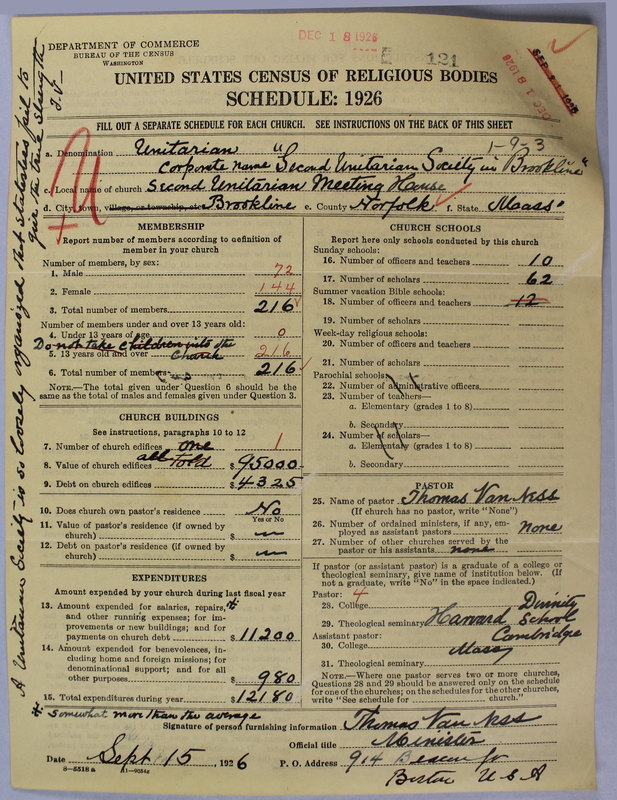 DEC 18 1926
DEPARTMENT OF COMMERCE
BUREAU OF THE CENSUS
WASHINGTON
E 121
DEC 18 1926
UNITED STATES CENSUS OF RELIGIOUS BODIES
SCHEDULE: 1926
FILL OUT A SEPARATE SCHEDULE FOR EACH CHURCH. SEE INSTRUCTIONS ON THE BACK OF THIS SHEET
1-9-3
a. Denomination Unitarian
Corporate name "Second Unitarian Society in Brookline"
c. Local name of church Second Unitarian Meeting House
d. City, town, village, or township, etc. Brookline e. County Norfolk f. State Mass.
MEMBERSHIP
Report number of members according to definition of
member in your church
Number of members, by sex:
1. Male 72
2. Female 144
3. Total number of members 216
Number of members under and over 13 years old:
4. Under 13 years of age 0
Do not take children into the
5. 13 years old and over Church 216
6. Total number of members 216
NOTE.—The total given under Question 6 should be
the same as the total of males and females given under Question 3.
CHURCH BUILDINGS
See instructions, paragraphs 10 to 12
7. Number of church edifices one 1
all told
8. Value of church edifices $ 95000
9. Debt on church edifices $ 4325
10. Does church own pastor's residence? No
Yes or No
11. Value of pastor's residence (if owned by
church) $ —
12. Debt on pastor's residence (if owned by
church) $ —
EXPENDITURES
Amount expended by your church during last fiscal year
13. Amount expended for salaries, repairs,
and other running expenses; for im-
provements or new buildings; and for
payments on church debt $ 11200
14. Amount expended for benevolences, in-
cluding home and foreign missions; for
denominational support; and for all
other purposes $ 980
15. Total expenditures during year $ 12180
CHURCH SCHOOLS
Report here only schools conducted by this church
Sunday schools:
16. Number of officers and teachers 10
17. Number of scholars 62
Summer vacation Bible schools:
18. Number of officers and teachers 12
19. Number of scholars
Week-day religious schools:
20. Number of officers and teachers
21. Number of scholars
Parochial schools:
22. Number of administrative officers
23. Number of teachers—
a. Elementary (grades 1 to 8)
b. Secondary
24. Number of scholars—
a. Elementary (grades 1 to 8)
b. Secondary
PASTOR
25. Name of pastor Thomas Van Ness
(If church has no pastor, write "None")
26. Number of ordained ministers, if any, em-
ployed as assistant pastors none
27. Number of other churches served by the
pastor or his assistants none
If pastor (or assistant pastor) is a graduate of a college or
theological seminary, give name of institution below. (If
not a graduate, write "No" in the space indicated.)
Pastor: 4
28. College Divinity
29. Theological seminary Harvard School
Assistant pastor: Cambridge
30. College Mass
31. Theological seminary
NOTE.—Where one pastor serves two or more churches,
Questions 28 and 29 should be answered only on the schedule
for one of the churches; on the schedules for the other churches,
write "See schedule for church."
somewhat more than the average
Signature of person furnishing information Thomas Van Ness
Official title Minister
Date Sept 15, 1926 P. O. Address 914 Beacon St
Boston U S A
8-5518 a
A Unitarian Society is so loosely organized that statistics fail to
give the true strength
T.V—